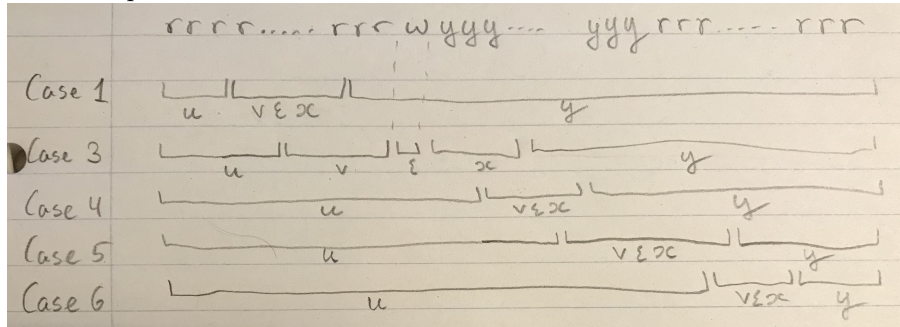 rrrr.....rrrwyyy.... yyyrrr.....rrr
Case 1 u vƐx y
Case 3 u v Ɛ x y
Case 4 u vƐx y
Case 5 u vƐx y
Case 6 u vƐx y